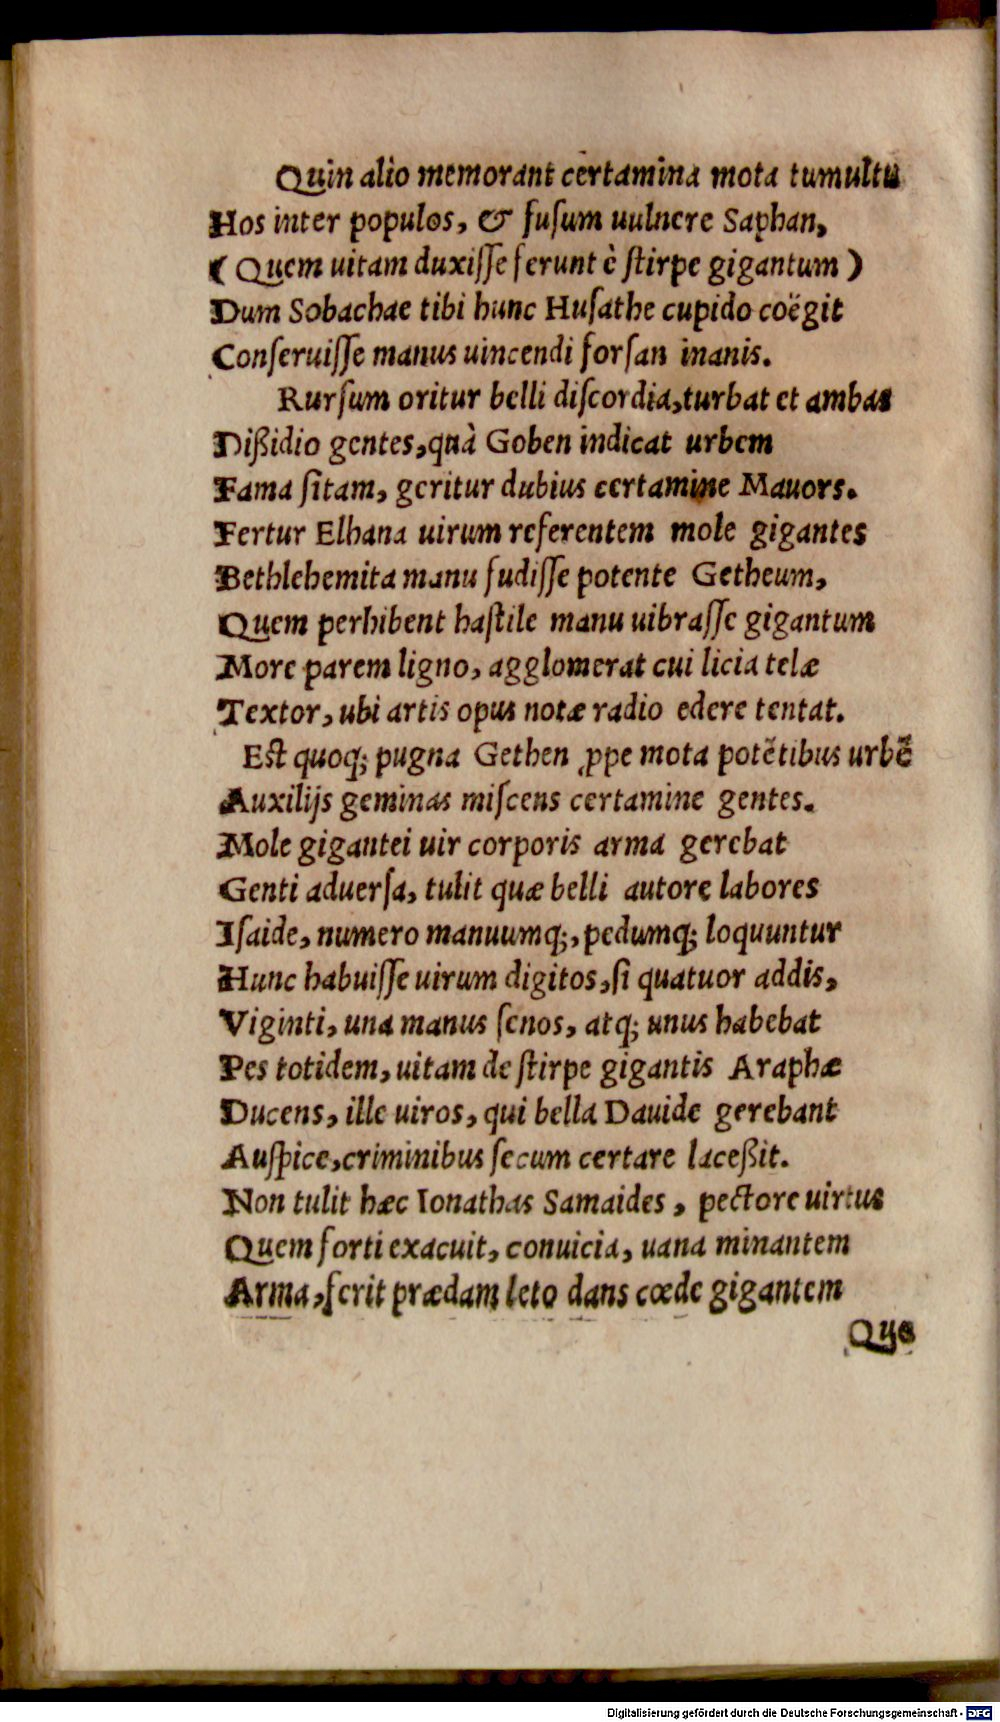 Quin alio memorant certamina mota tumultu
Hos inter populos, & fusum uulnere Saphan,
(Quem uitam duxiſſe ferunt è ſtirpe gigantum)
Dum Sobachae tibi hunc Huſathe cupido coëgit
Conſeruiſſe manus uincendi forſan inanis.
Rurſum oritur belli diſcordia, turbat et ambas
Dißidio gentes, quà Goben indicat urbem
Fama ſitam, geritur dubius certamine Mauors.
Fertur Elhana uirum referentem mole gigantes
Bethlehemita manu fudiſſe potente Getheum,
Quem perhibent haſtile manu uibraſſe gigantum
More parem ligno, agglomerat cui licia telæ
Textor, ubi artis opus notæ radio edere tentat.
Eſt quoq; pugna Gethen ꝓpe mota potẽtibus urbẽ
Auxilijs geminas miſcens certamine gentes.
Mole gigantei uir corporis arma gerebat
Genti aduerſa, tulit quæ belli autore labores
Iſaide, numero manuumq;, pedumq; loquuntur
Hunc habuiſſe uirum digitos, ſi quatuor addis,
Viginti, una manus ſenos, atq; unus habebat
Pes totidem, uitam de ſtirpe gigantis Araphæ
Ducens, ille uiros, qui bella Dauide gerebant
Auſpice, criminibus ſecum certare laceßit.
Non tulit hæc Ionathas Samaides, pectore uirtus
Quem forti exacuit, conuicia, uana minantem
Arma, ferit prædam leto dans cœde gigantem
Que
Digitalisierung gefördert durch die Deutsche Forschungsgemeinschaft - DFG